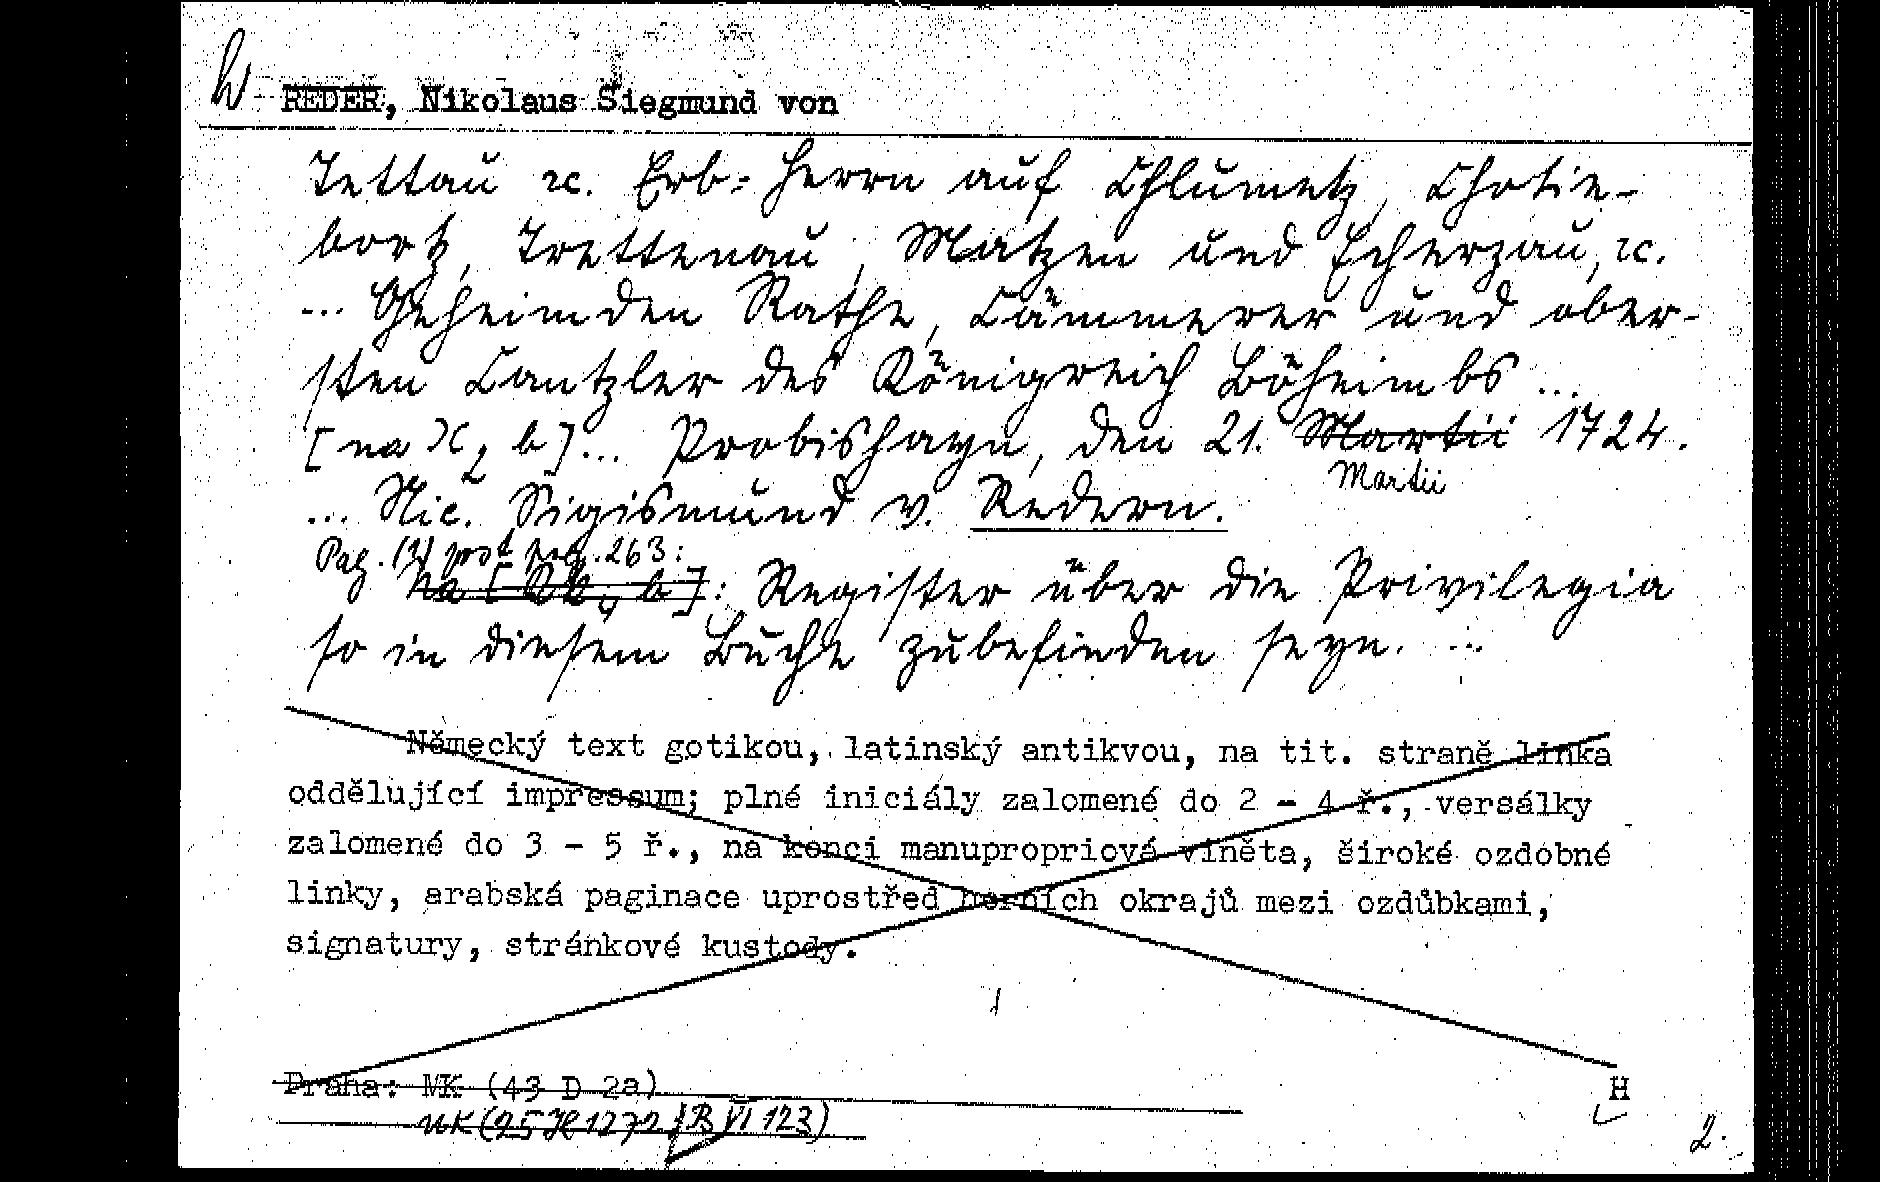 REDER, Nikolaus Siegmund von
Tettau ꝛc. Erb-Herrn auf Chlumetz, Chotie-
bortz, Trettenau, Matzen und Echerzau, ꝛc.
... Geheimden Rathe, Cämmerer und ober-
sten Cantzler des Königreich Böheimbs ...
[na X2 b]... Probishayn, den 21. Martii 1724.
Martii
... Nic. Sigismund v. Redern.
Pag. (1) post pag. 263:
Na [Kk4 b]: Register über die Privilegia
so in diesem Buche zubefinden seyn. ...
Německý text gotikou, latinský antikvou, na tit. straně linka
oddělující impressum; plné iniciály zalomené do 2 - 4 ř., versálky
zalomené do 3 - 5 ř., na konci manupropriová viněta, široké ozdobné
linky, arabská paginace uprostřed horních okrajů mezi ozdůbkami,
signatury, stránkové kustody.
Praha: MK (43 D 2a)
H
UK (25 H 1272) B VI 123)
2.